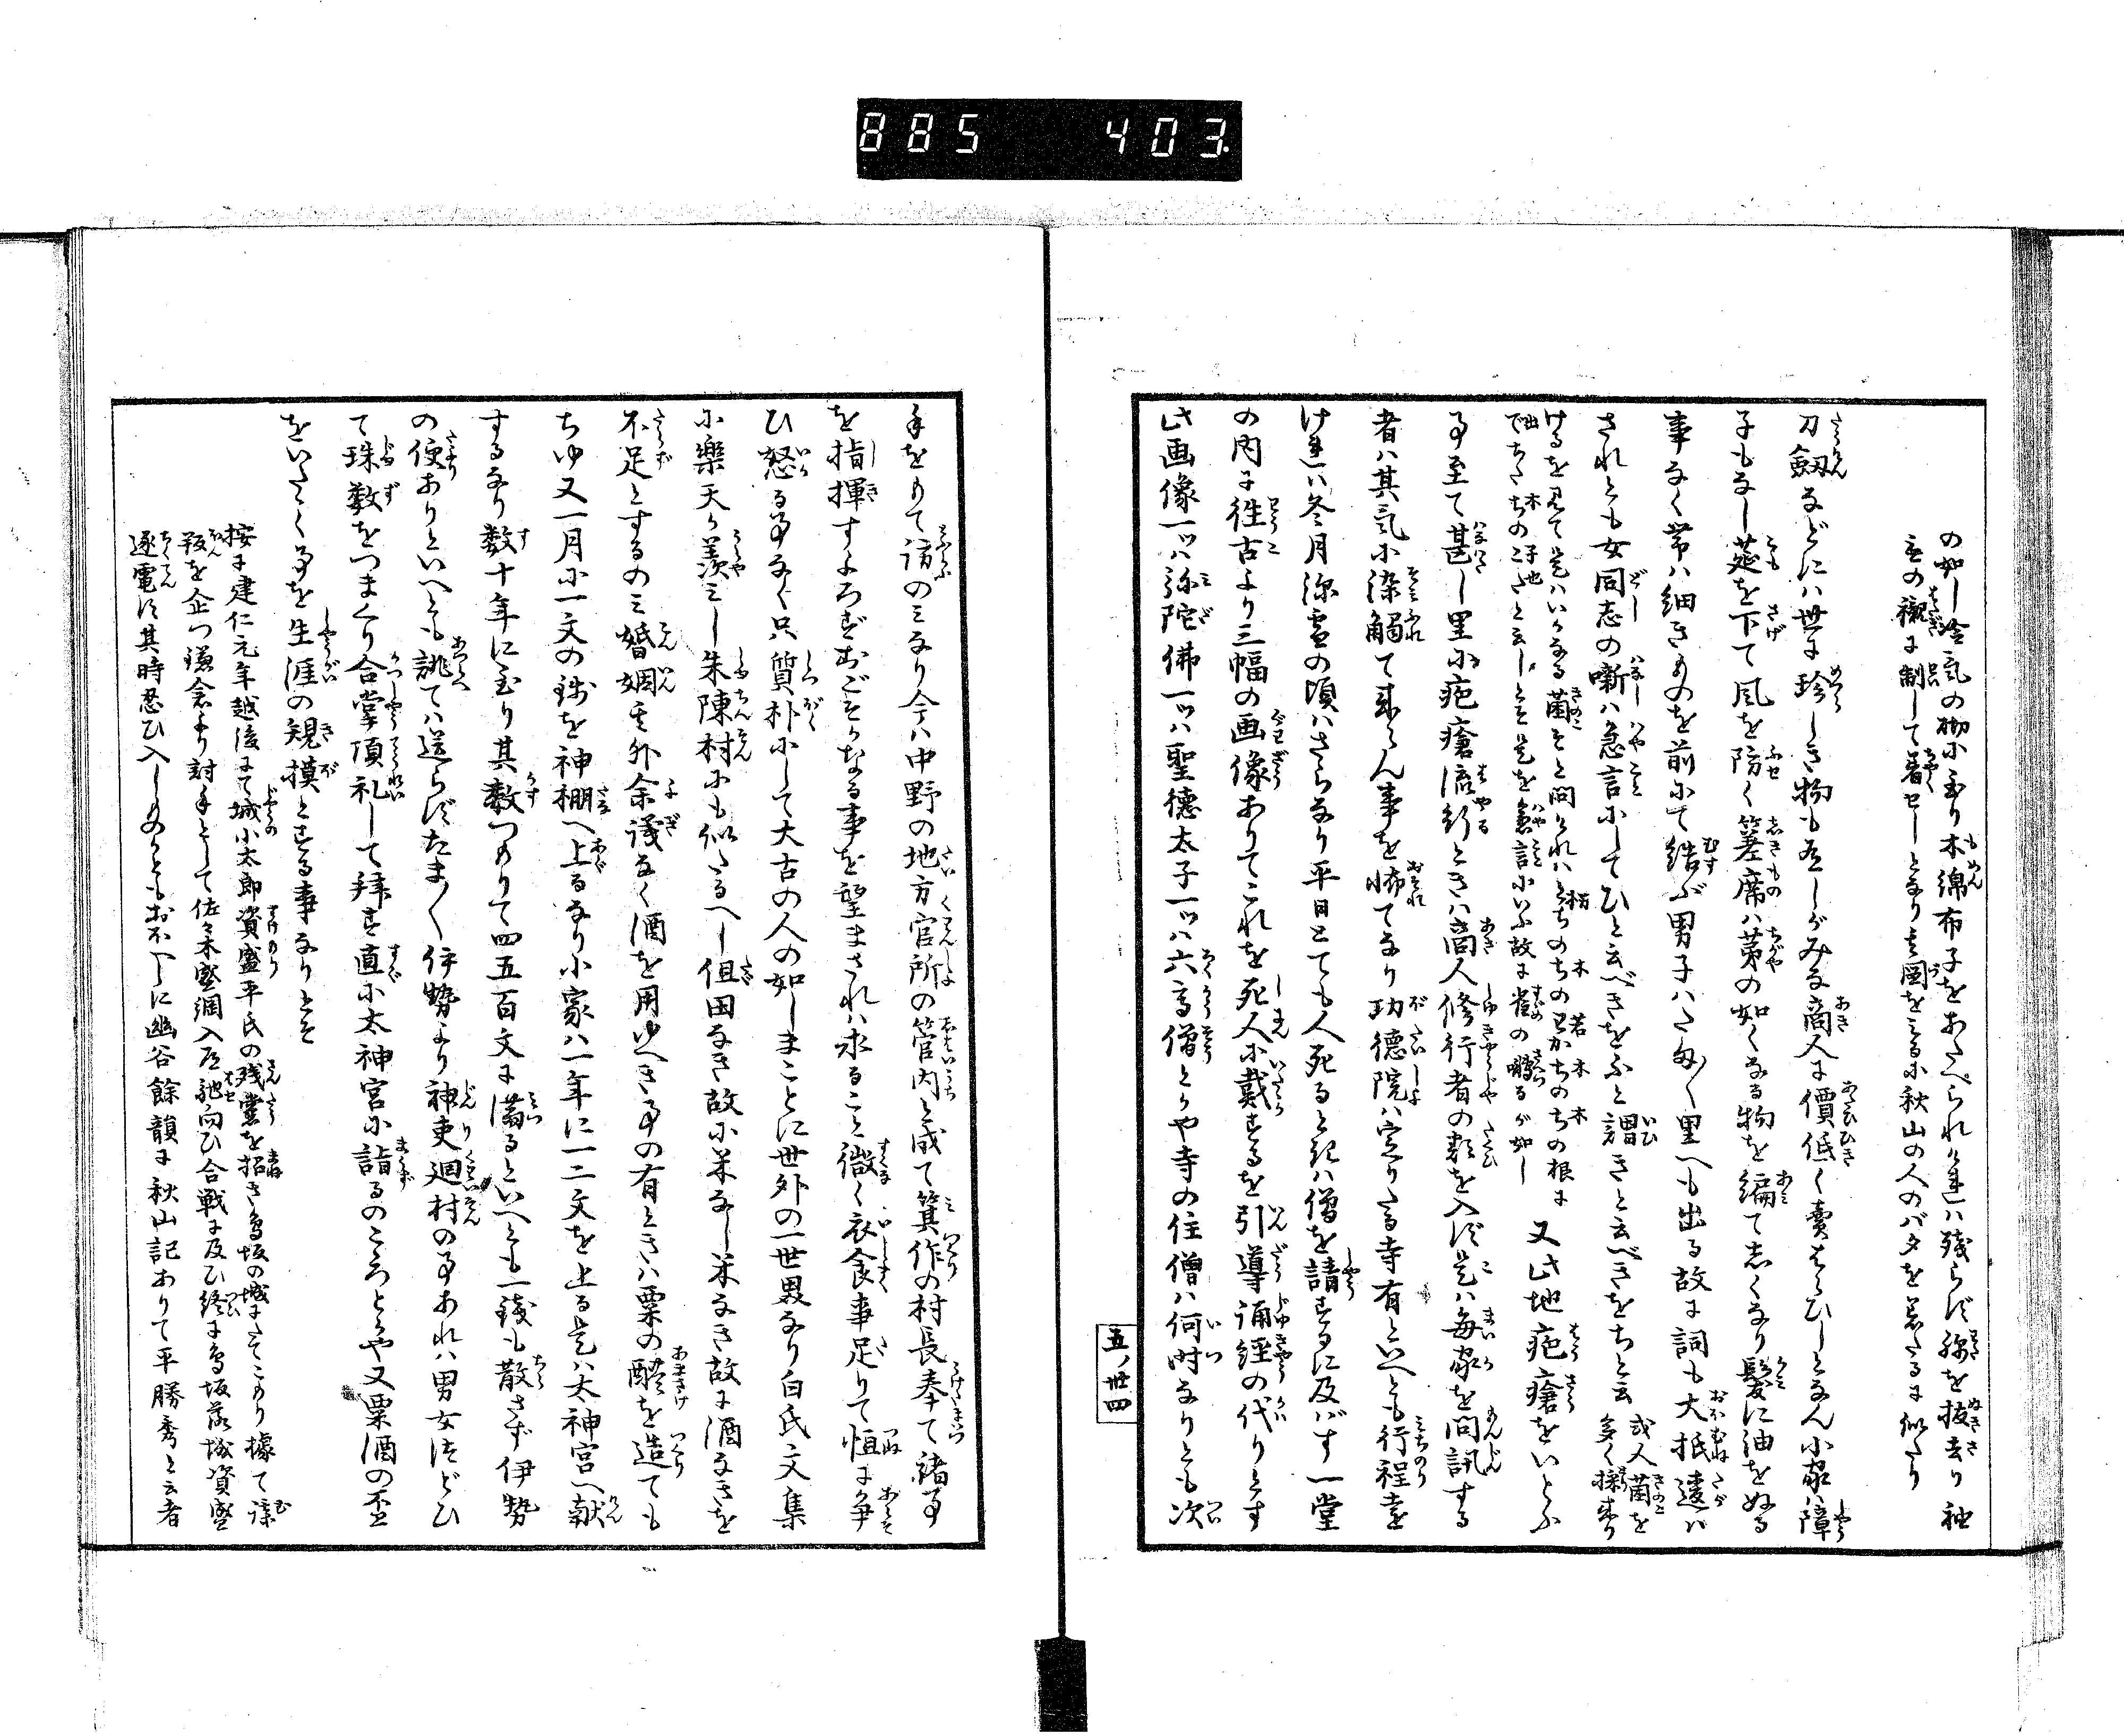 885 403.
の如し冷気の砌に至り木綿布子をあたへられけれハ残らず綿を抜去り袖
の襯に制して着せしとなり
刀劔などにハ世に珍しき物も有しがみな商人に價低く賣はらひしとなん小家ハ障
子もなし莚を下て風を防く筵席ハ茅の如くなる物を編て志くなり髪に油をぬる
事なく帯ハ細きものを前にて結ぶ男子ハたま〱里へも出る故に詞も大抵違ハ
されとも女同志の噺ハ急言にしてひと云べきをふと謂きと云べきをちと云 或人菌を多く採来り
けるを見て是ハいかなる菌そと問けれハ
又此地疱瘡をいとふ
事至て甚し里に疱瘡流行ときハ商人修行者の類を入ず是ハ毎家を問訊する
者ハ其気に染觸て来らん事を怖てなり功徳院ハ定りたる寺有といへとも行程遠
けれハ冬月深雪の頃ハさらなり平日とても人死ると死ハ僧を請するに及バす一堂
の内に往古より三幅の画像ありてこれを死人に戴するを引導誦経の代りとす
此画像一ツハ弥陀佛一ツハ聖徳太子一ツハ六高僧とかや寺の住僧ハ何時なりとも次
五ノ廿四
手をもて訪のミなり今ハ中野の地方官所の管内と成て箕作の村長奉て緒事
を指揮すよろずおごそかなる事を望まされハ求ること微く衣食事足りて恒に争
ひ怒る事なく只質朴にして大古の人の如しまことに世外の一世界なり白氏文集
に樂天か羨ミし朱陳村にも似たるへし但田なき故に米なし米なき故に酒なきを
不足とするのミ婚姻其外余議なく酒を用ゆへき事の有ときハ粟の醴を造ても
ちゆ又一月に一文の銭を神棚へ上るなり小家ハ一年に一二文を上る是ハ太神宮へ献
するなり数十年に至り其数つもりて四五百文に満るといへとも一銭も散さず伊勢
の便ありといへとも誂てハ送らずたま〱伊勢より神吏廻村の事あれハ男女つどひ
て珠数をつまくり合掌頂礼して拝す直に太神宮に詣るのこゝろとかや又粟酒の盃
をいたゝく事を生涯の規摸とする事なりとそ
按に建仁元年越後にて城小太郎資盛平氏の残黨を招き鳥坂の城にたてこもり據て謀
叛を企つ鎌倉より討手として佐々木盛綱入道馳向ひ合戦に及ひ終に鳥坂落城資盛
逐電す其時忍ひ入しものともおほへしに幽谷餘韻に秋山記ありて平勝秀と云者